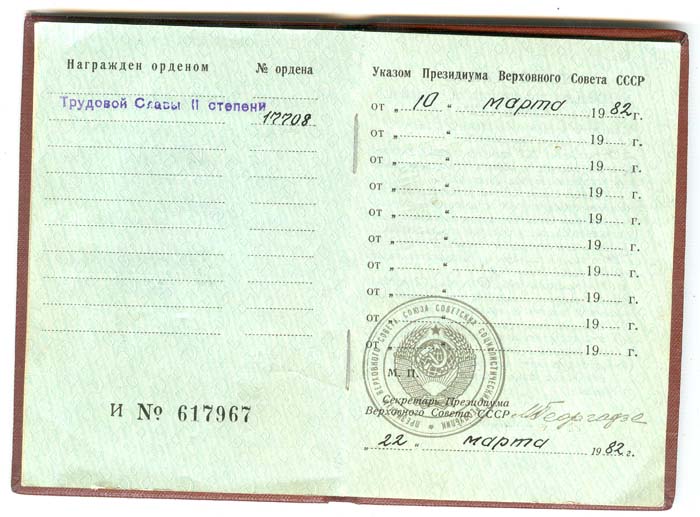 Награжден орденом № ордена
Трудовой Славы II степени
17708
И № 617967
Указом Президиума Верховного Совета СССР
от „ 10 “ марта 1982 г.
от „ “ 19 г.
от „ “ 19 г.
от „ “ 19 г.
от „ “ 19 г.
от „ “ 19 г.
от „ “ 19 г.
от „ “ 19 г.
от „ “ 19 г.
от „ “ 19 г.
ПРЕЗИДИУМ ВЕРХОВНОГО СОВЕТА СОЮЗА СОВЕТСКИХ СОЦИАЛИСТИЧЕСКИХ РЕСПУБЛИК
М. П.
Секретарь Президиума
Верховного Совета СССР МГеоргадзе
„ 22 “ марта 1982 г.